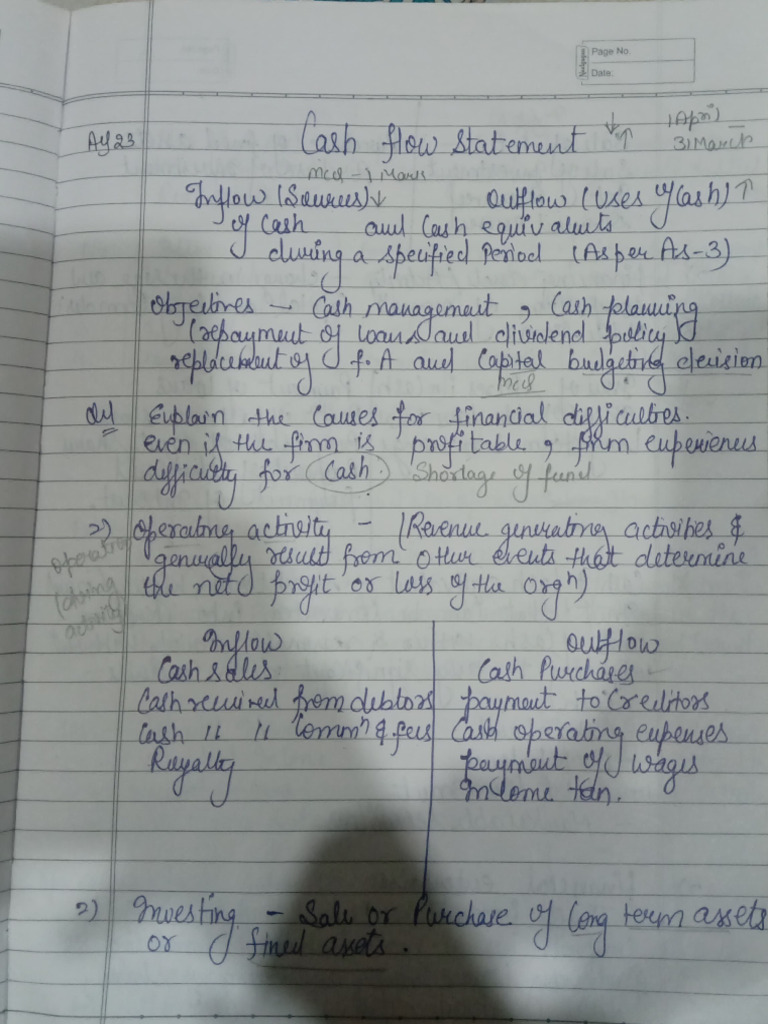 Page No.
Date:
AY23 Cash flow statement ↓↑ 1April – 31March
mcq - 1 Marks
Inflow (Sources)↓ Outflow (Uses of Cash)↑
of Cash and Cash equivalents
during a specified Period (As per As-3)
Objectives – Cash management, Cash planning
(repayment of loans and dividend policy)
replacement of f.A and Capital budgeting decision
mcq
Explain the Causes for financial difficulties.
even if the firm is profitable, firm experiences
difficulty for (Cash.) Shortage of fund
2) Operating activity – (Revenue generating activities &
generally result from other events that determine
the net profit or loss of the orgⁿ)
operation
(during
activity)
Inflow
Cash sales
Cash received from debtors
Cash 11 11 Commⁿ & fees
Royalty
Outflow
Cash Purchases
payment to Creditors
Cash operating expenses
payment of wages
Income tax.
2) Investing – Sale or Purchase of long term assets
or fixed assets.